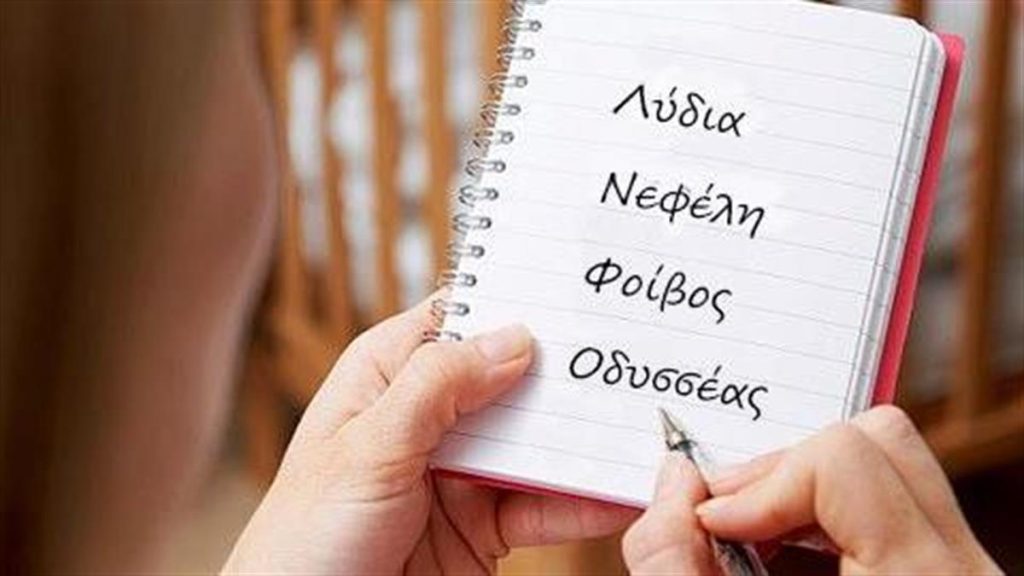 Λύδια
Νεφέλη
Φοίβος
Οδυσσέας